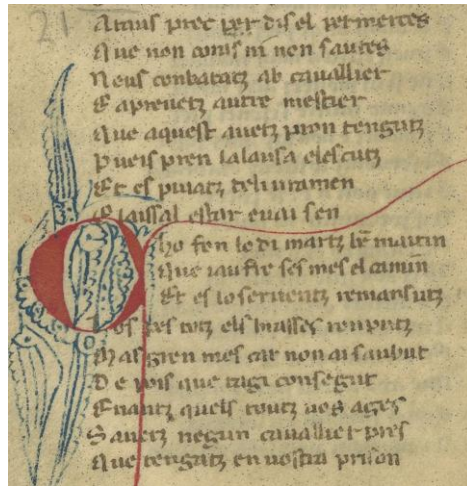 21
Amius prec per dis el per merces
Que non conis ni non sautes
Neus conbatatz ab cauallier
E aprenetz autre mestier
Que aquest auetz pron tengutz
Pueis pren la lansa el escutz
Et es puiatz deliuramen
E laissal estar e uai sen
ho fon lo di martz be maitin
Que iaufre ses mes el camin
Et es lo seruentz remansutz
totz els brasses romputz
Mas gren mes car non ai saubut
De uos que ragi consegut
Enantz quels toutz uos ages
Sauetz negun cauallier pres
Que tengatz en uostra prison